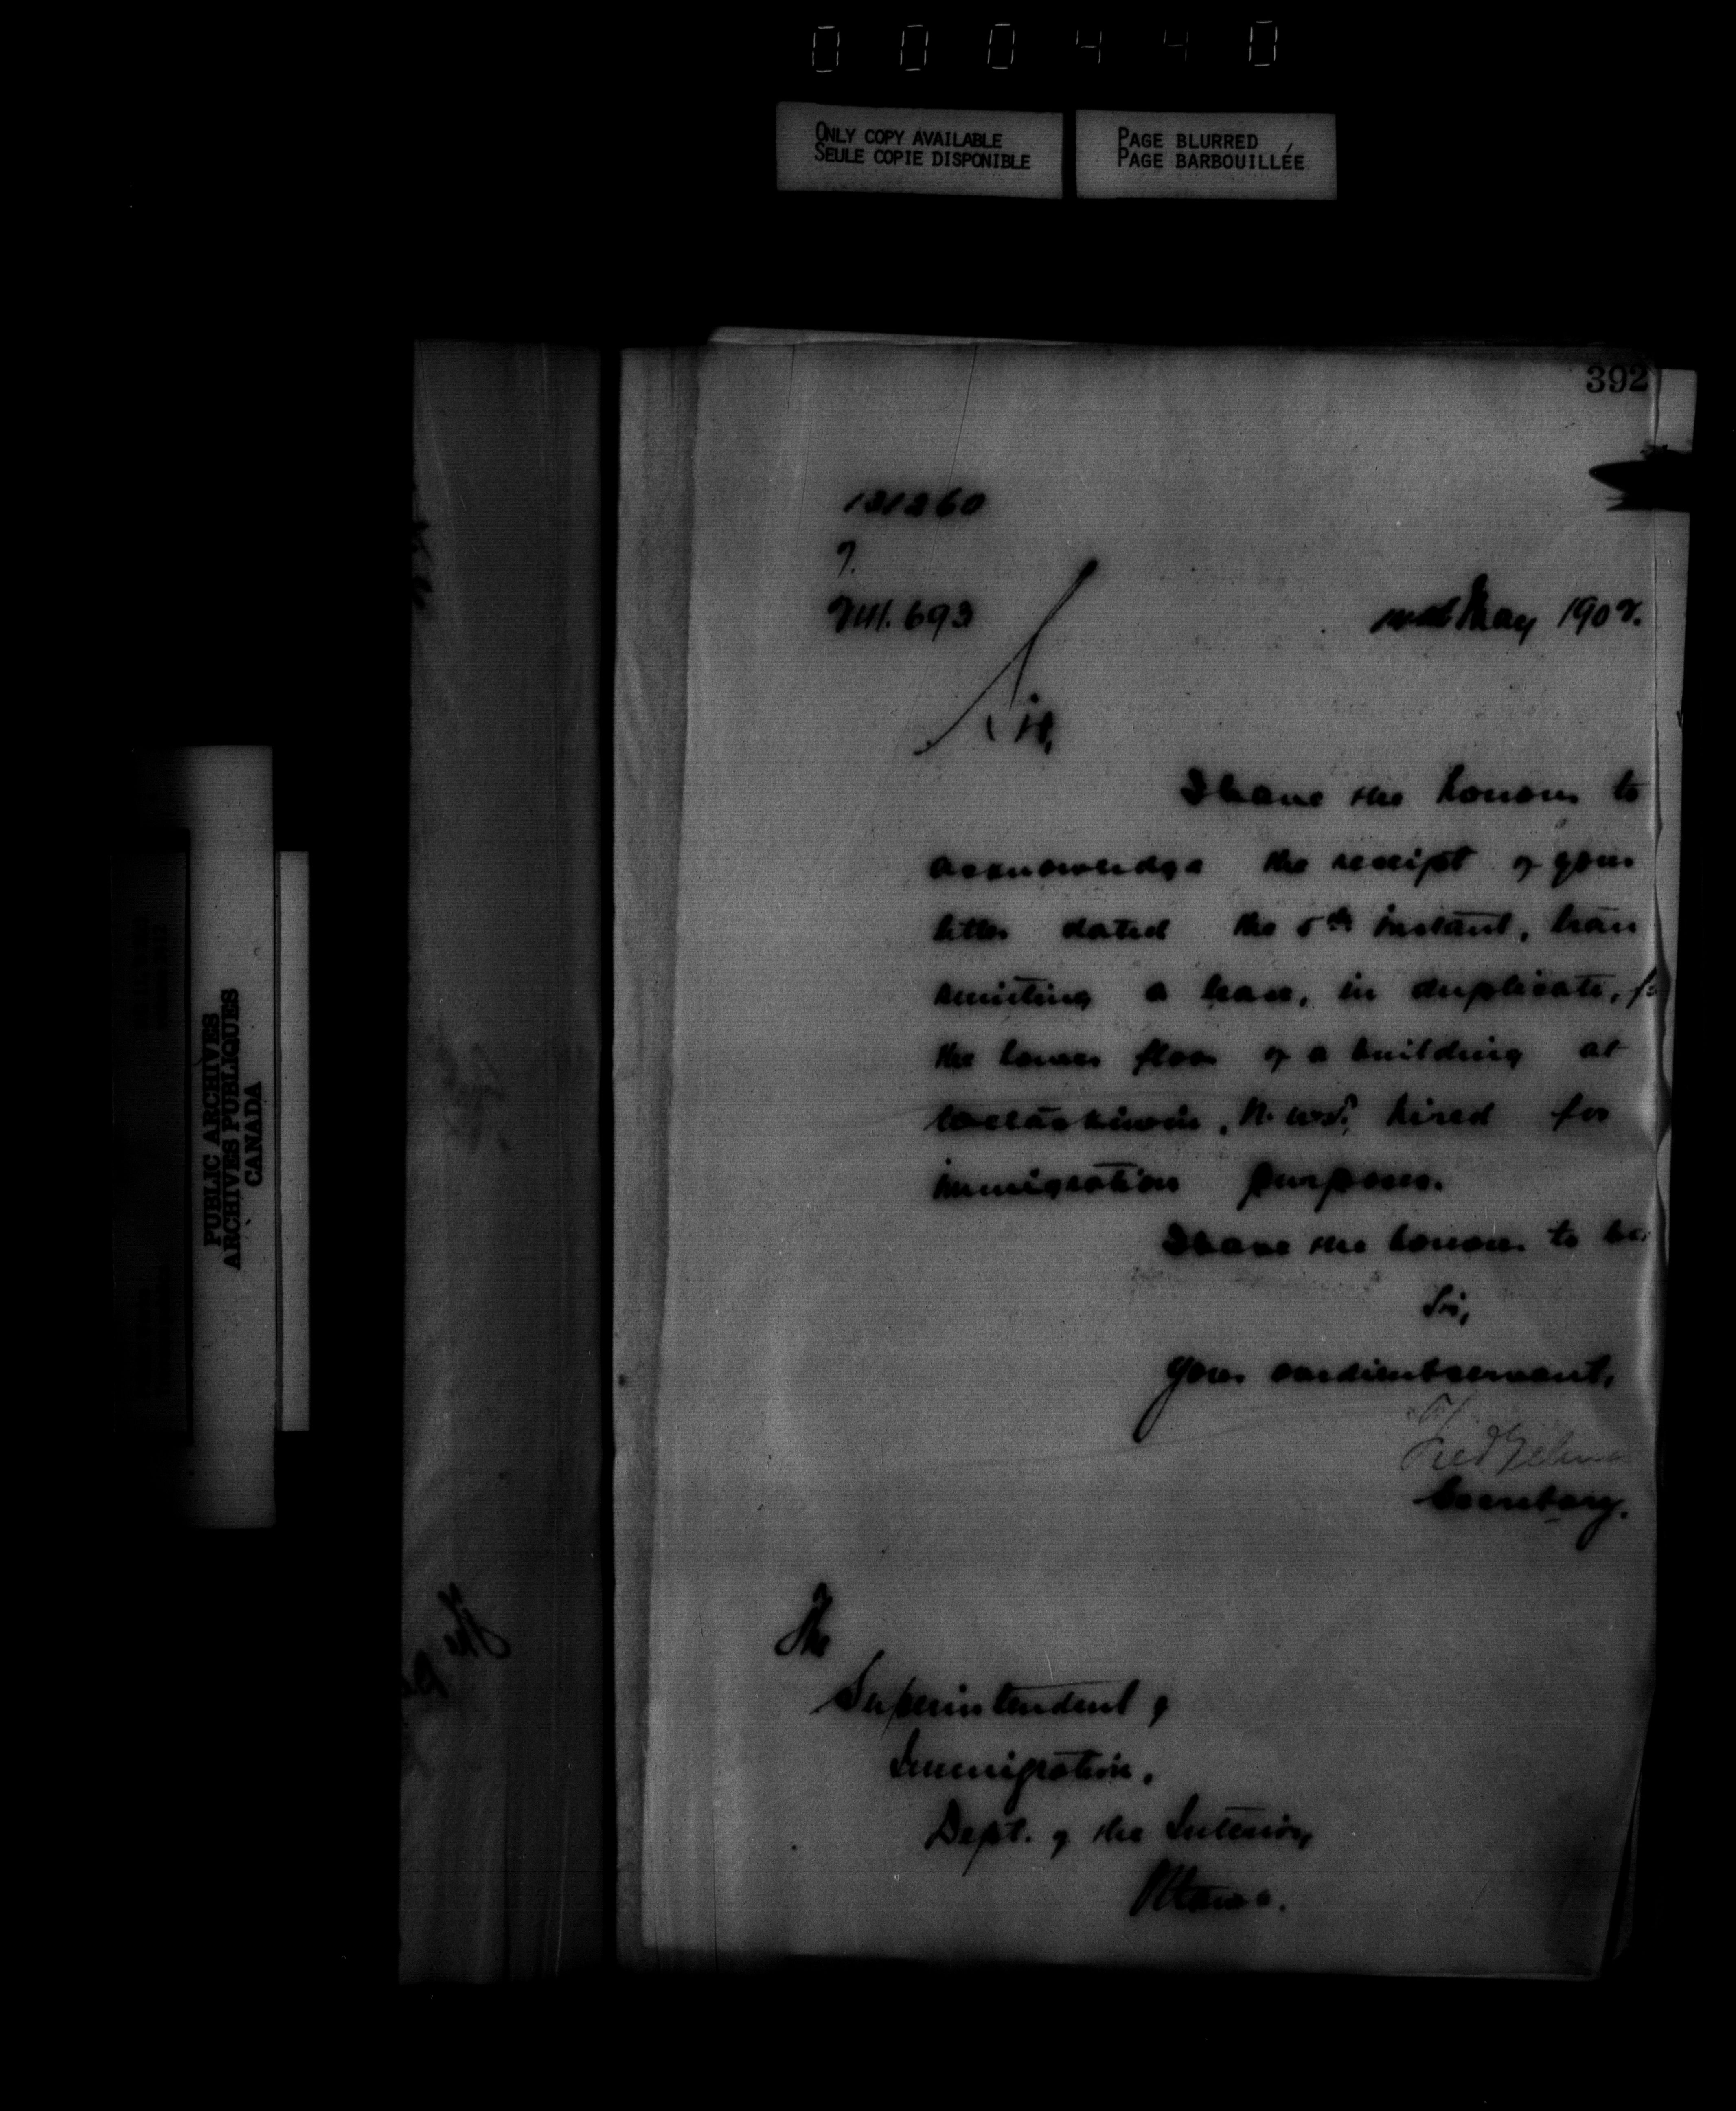 000440
ONLY COPY AVAILABLE
SEULE COPIE DISPONIBLE
PAGE BLURRED
PAGE BARBOUILLÉE
392
131260
7.
693
May 1902.
Sir,
I have the honour to
acknowledge the receipt of your
letter dated the 5th instant, tran
smitting a lease, in duplicate, fo
the lower floor of a building at
Wetaskiwin, N.W.T., hired for
immigration purposes.
I have the honour to be,
Sir,
Your obedient servant,
Fred Gelinas
Secretary.
The
Superintendent of
Immigration,
Dept. of the Interior,
Ottawa.
PUBLIC ARCHIVES
ARCHIVES PUBLIQUES
CANADA
The